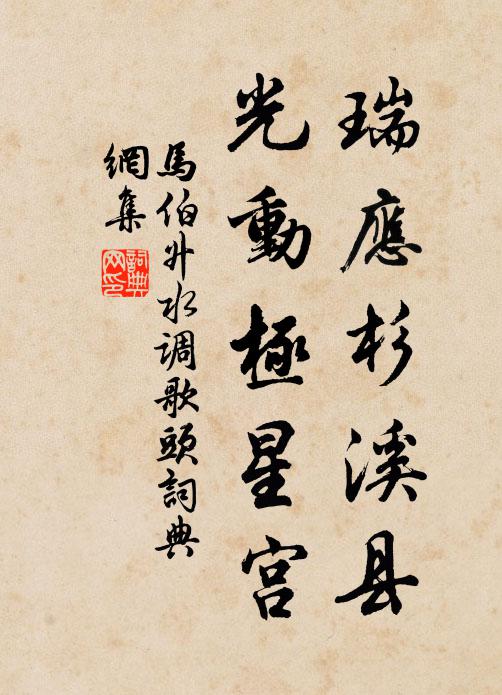 瑞應杉溪县
光動極星宫
馬伯升水調歌頭詞典
網集
詞典
网印